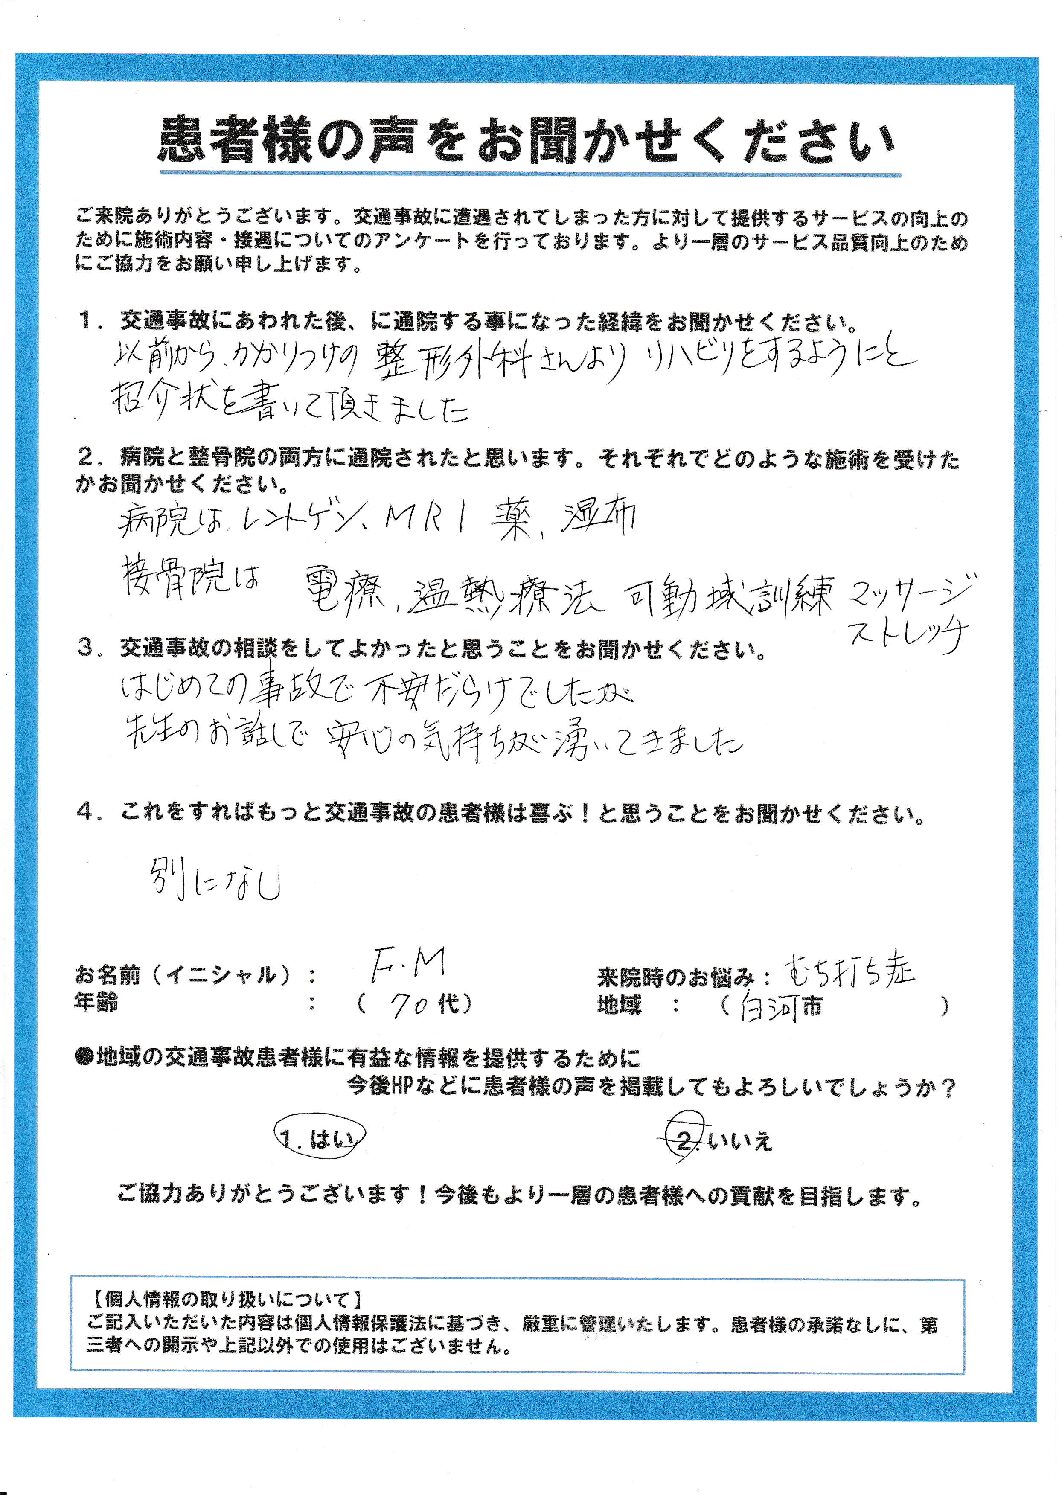 患者様の声をお聞かせください
ご来院ありがとうございます。交通事故に遭遇されてしまった方に対して提供するサービスの向上の
ために施術内容・接遇についてのアンケートを行っております。より一層のサービス品質向上のため
にご協力をお願い申し上げます。
1．交通事故にあわれた後、に通院する事になった経緯をお聞かせください。
以前から、かかりつけの整形外科さんよりリハビリをするようにと
招介状を書いて頂きました
2．病院と整骨院の両方に通院されたと思います。それぞれでどのような施術を受けた
かお聞かせください。
病院は、レントゲン、MRI 薬、湿布
接骨院は 電療、温熱療法 可動域訓練 マッサージ
ストレッチ
3．交通事故の相談をしてよかったと思うことをお聞かせください。
はじめての事故で不安だらけでしたが
先生のお話しで安心の気持ちが湧いてきました
4．これをすればもっと交通事故の患者様は喜ぶ！と思うことをお聞かせください。
別になし
お名前（イニシャル）： F.M 来院時のお悩み：むち打ち症
年齢 ：（70代） 地域 ：（白河市 ）
●地域の交通事故患者様に有益な情報を提供するために
今後HPなどに患者様の声を掲載してもよろしいでしょうか？
1.はい 2.いいえ
ご協力ありがとうございます！今後もより一層の患者様への貢献を目指します。
【個人情報の取り扱いについて】
ご記入いただいた内容は個人情報保護法に基づき、厳重に管理いたします。患者様の承諾なしに、第
三者への開示や上記以外での使用はございません。